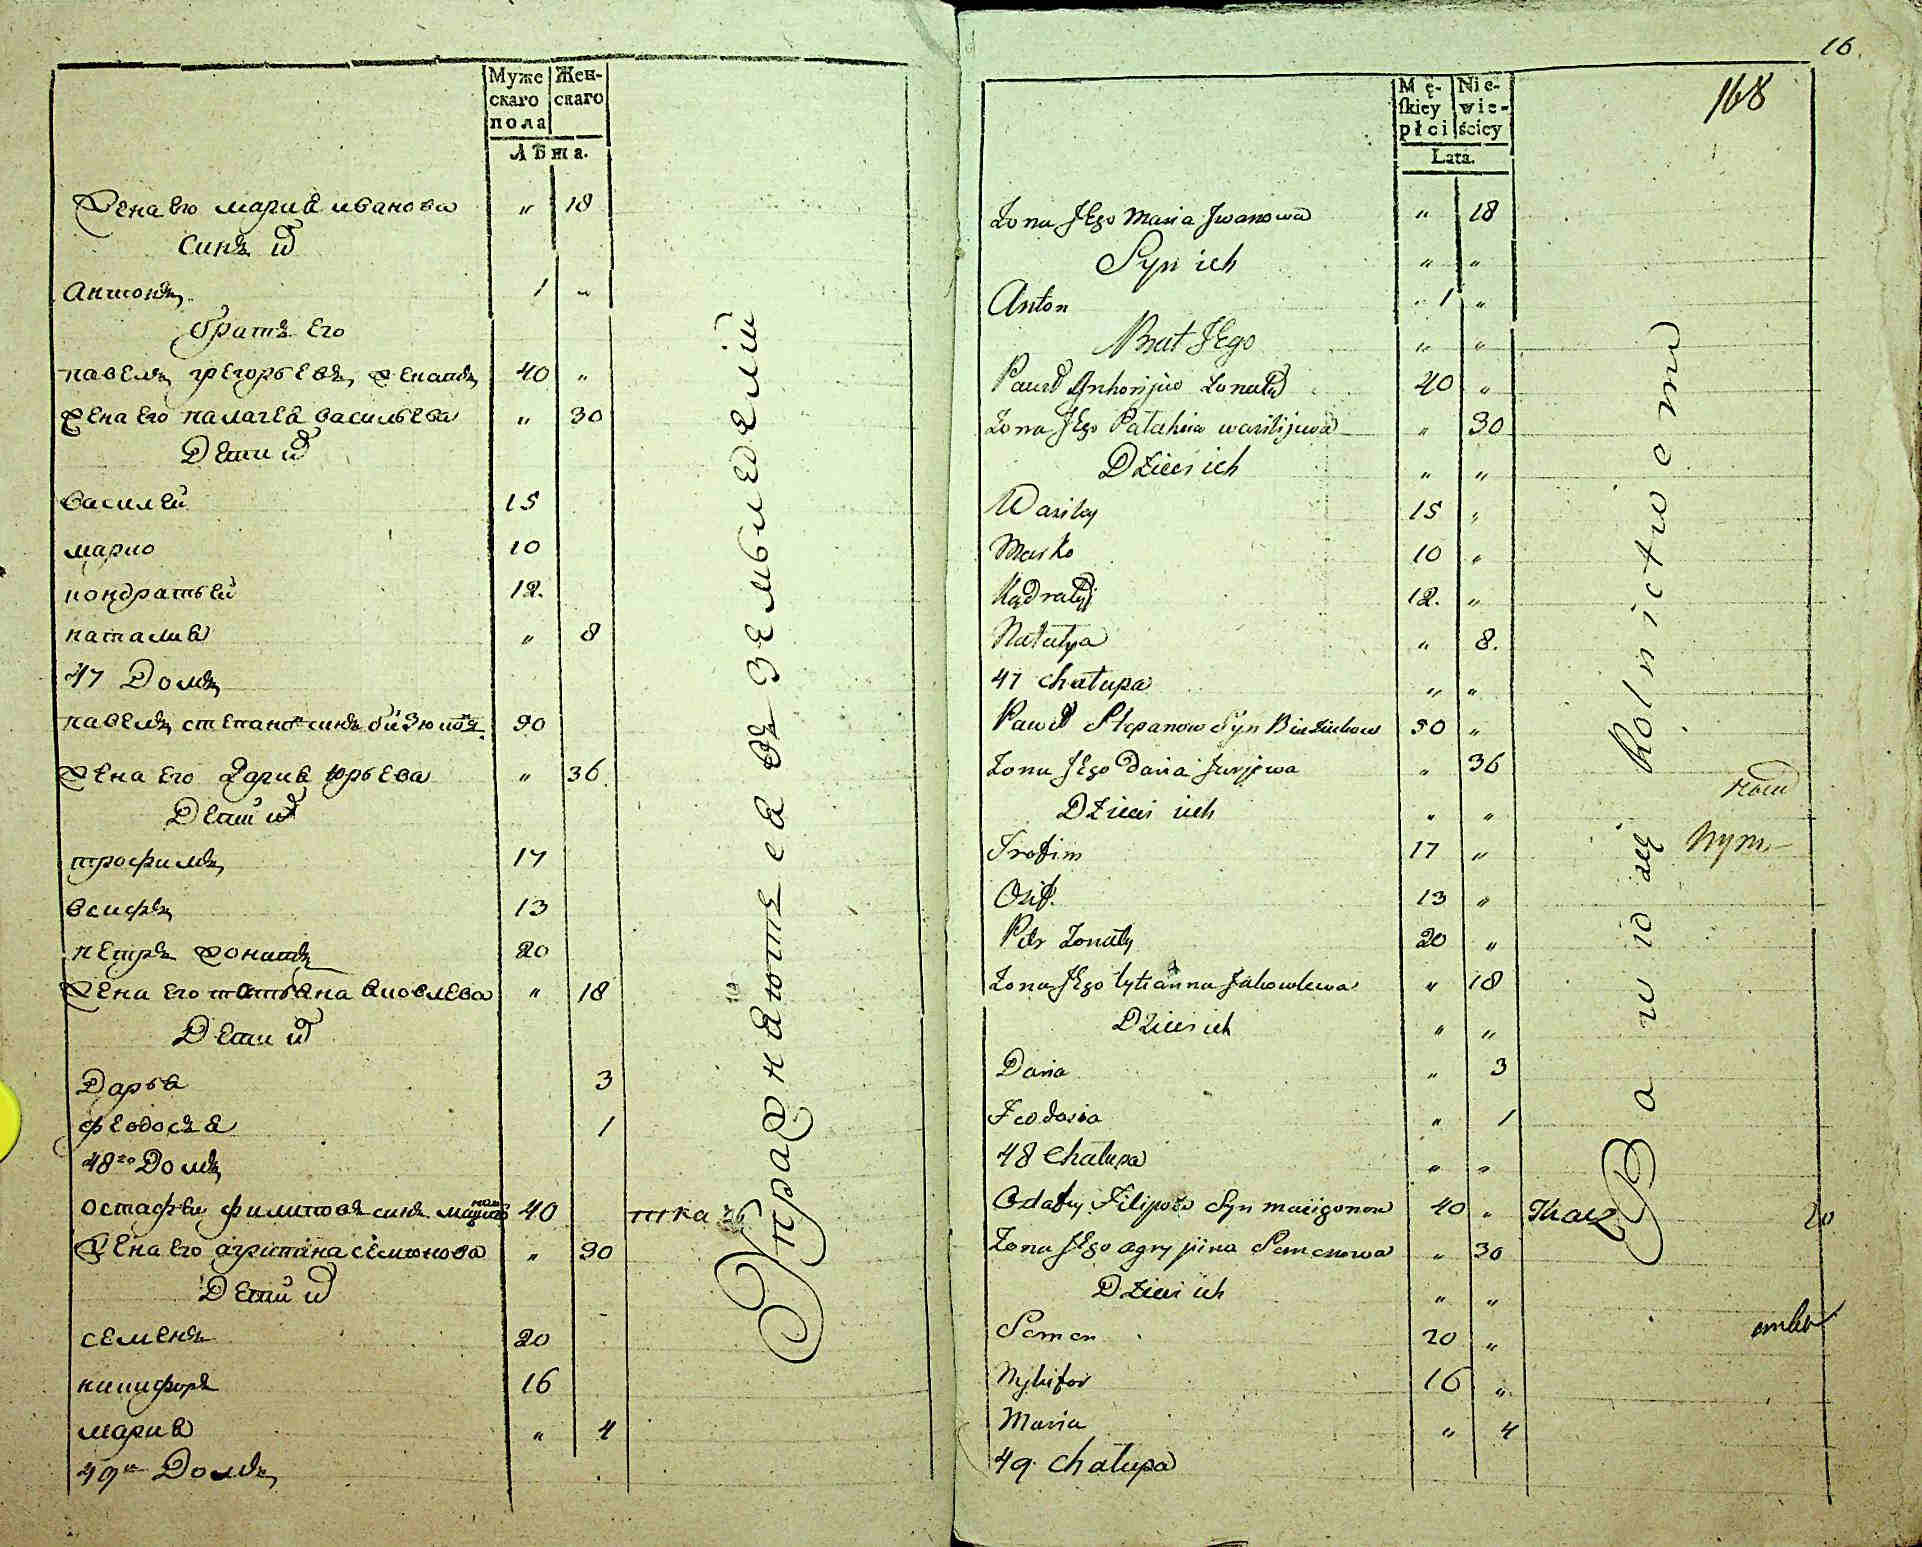 Муже
скаго
пола
Жен-
скаго
Лѣта.
Жена его мария иванова " 18
Синъ их
Антонъ 1 "
братъ его
павелъ григорьевъ женатъ 40 "
Жена его палагея васильева " 30
Дети их
василей 15
марко 10
кондратьей 12.
наталия " 8
47 Домъ
павелъ степановъ синъ бизюковъ 50
Жена его Дария юрьева " 36
Дети их
трофимъ 17
осифъ 13
петръ жонатъ 20
Жена его татьяна яковлева " 18
Дети их
Дарья 3
феодосья 1
48го Домъ
остафѣи филиповъ синъ 40 ткачь
Жена его агрипина семионова " 30
Дети их
семенъ 20
никифоръ 16
мария " 4
49й Домъ
Упражнаютеся въ земьледелїи
16
168
Mę-
skiey
płci
Nie-
wie-
ściey
Lata.
Żona JEgo Maria Jwanowa " 18
Syn ich " "
Anton " 1 "
Brat JEgo " "
Paweł Hrehorijew żonaty 40 "
Żona JEgo Pałahia wasilijewa " 30
Dzieci ich " "
Wasiley 15 "
Marko 10 "
Kądratyj 12. "
Natalya " 8.
47 chałupa " "
Paweł Stepanow Syn Biziukow 50 "
Żona JEgo Daria Jurjewa " 36
Dzieci ich " "
Trofim 17 "
Osif. 13 "
Petr żonaty 20 "
Żona JEgo tytianna Jakowlewa " 18
Dzieci ich " "
Daria " 3
Feodosia " 1
48 Chałupa " "
Ostafiy Filipow Syn macigonow 40 " Tkacz
Żona JEgo agrypina Semenowa " 30
Dzieci ich " "
Semen 20 "
Nykifor 16 "
Maria " 4
49. chałupa
Bawią się Rolnictwem